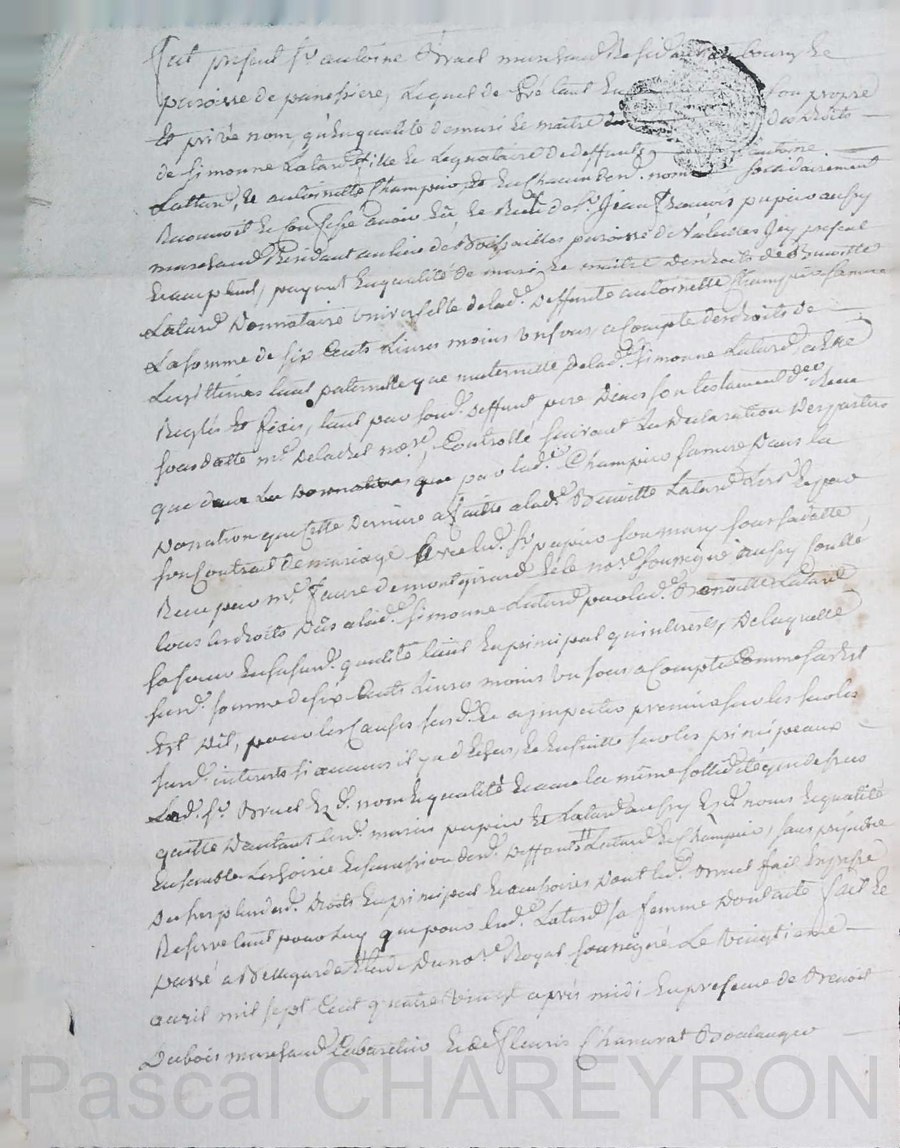 fut present Sr antoine Bruel marchand Residant au bourg Et
paroisse de panissiere, Lequel de Gré tant En son propre
Et privé nom, qu'En qualité de mari Et maitre des Droits
de Simonne Latard fille Et Legataire de deffunts antoine
Lattard, Et antoinette Champier, Et En Chacun des d. noms solidairement
Reconnoit Et Confesse avoir Eû Et Reçu de Sr Jean francois papier aussy
marchand Residant au lieu de paroisse de present
Et acceptant, payant En qualité de mari Et maitre des droits de Benoitte
Latard Donnataire Universelle de lad. Deffunte antoinette Champier sa mere
La somme de Six Cents Livres moins un sous, a Compte des droits de
Legittimes tant paternelle que maternelle de lad. Simonne Latard, a Elle
Reglés Et fixés, tant par sond. Deffunt pere Dans son testament Reçu
sous datte me Delachel nore, Controllé suivant La Declaration Des parties
que par lad. Champier sa mere Dans la
Donation que Cette Derniere a faitte a lad. Benoitte Latard
son Contrat de mariage avec led. Sr papier son mary sous sa datte
Recu par me faure de montgirard Et le nore soussigné aussy Controllé
tous Les droits Dûs a lad. Simonne Latard par lad. Benoitte Latard
sa soeur En sa susd. qualité tant En principal qu'interets, De laquelle
susd. somme de six Cents Livres moins un sous a Compte Comme susdit
Est Dit, pour les Causes susd. Et a imputer premier sur les
susd. interets si aucuns il y a d'Echus, Et Ensuitte sur les principaux
Led. Sr Bruel Esd. nom Et qualité Et avec la même sollidité que dessus
quitte D'autant lesd. mariés papier Et Latard aussy Esd. noms Et qualité
Ensemble Les hoirie Et succession desd. Deffunts Latard Et Champier, sans prejudice
Du surplus desd. Droits En principal Et accessoires Dont led. Bruel fait Expresse
Reserve tant pour Luy que pour lad. Latard sa femme Dont acte fait Et
passé a Bellegarde Etude Du nore Royal soussigné Le vingtieme
avril mil sept Cent quatre vingt après midi En presence de Benoit
Dubois marchand Cabaretier Et de fleuris Chanavat Boulanger
Pascal CHAREYRON